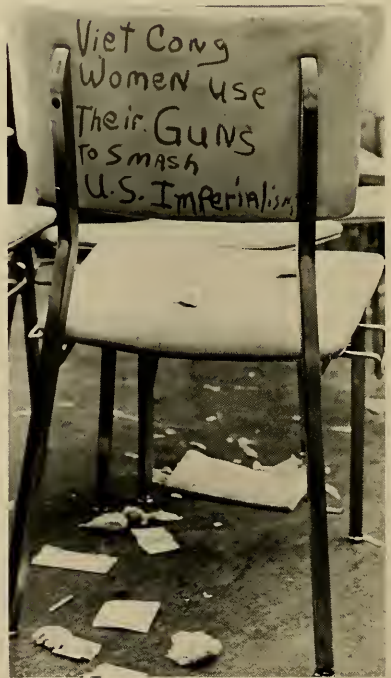 Viet Cong
Women use
Their GUNS
To Smash
U.S. Imperialism